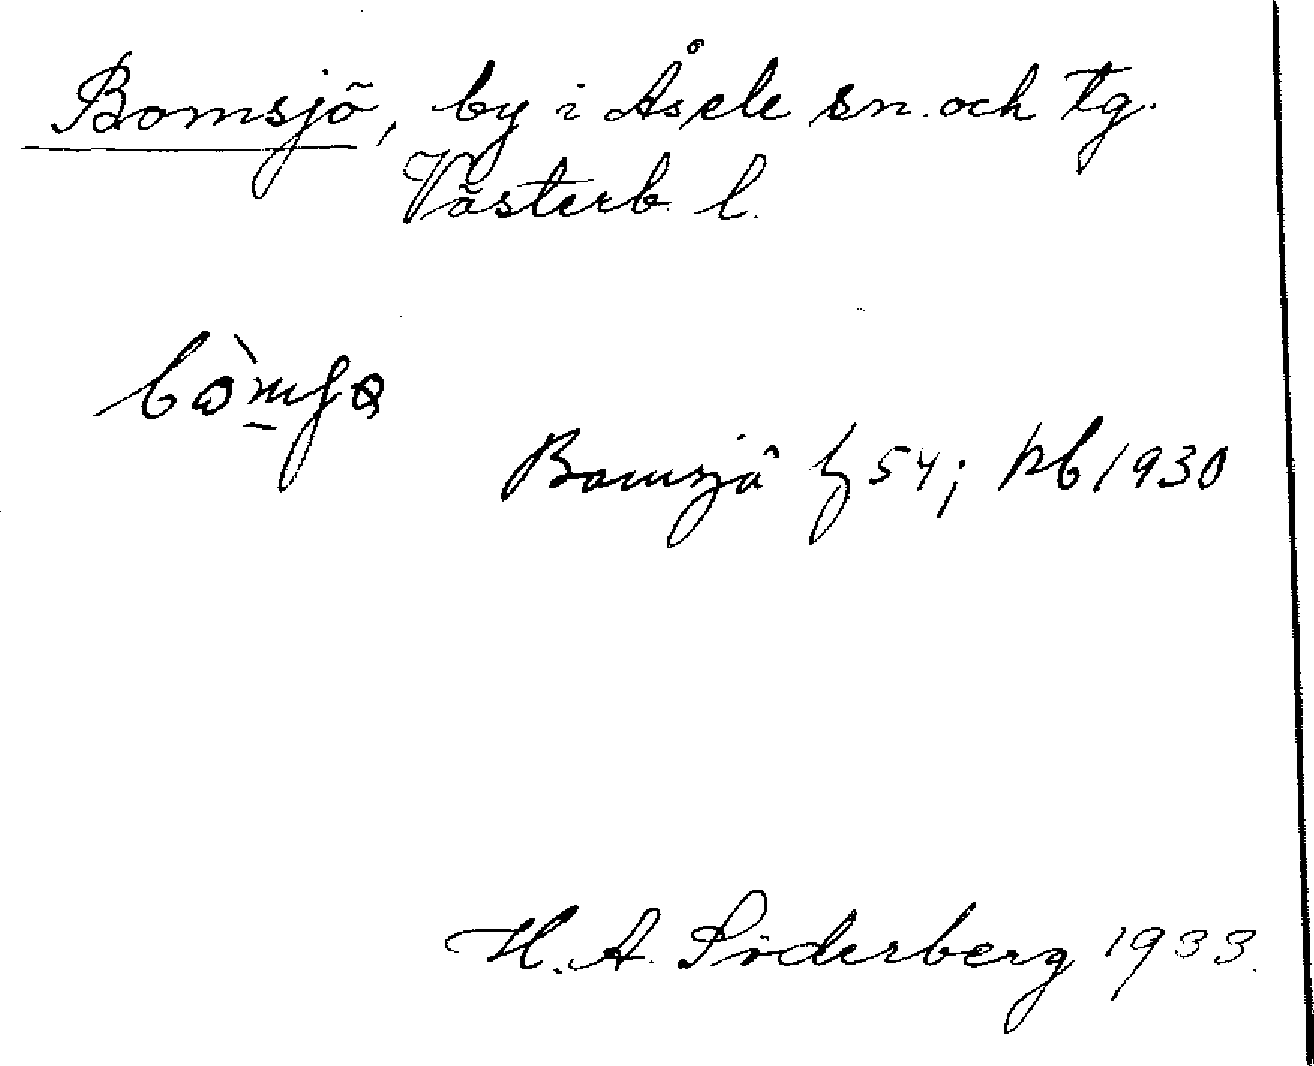 Bomsjö, by i Åsele sn. och tg.
Västerb. l.
Bomsjö 54; pb 1930
H. A. Söderberg 1933.